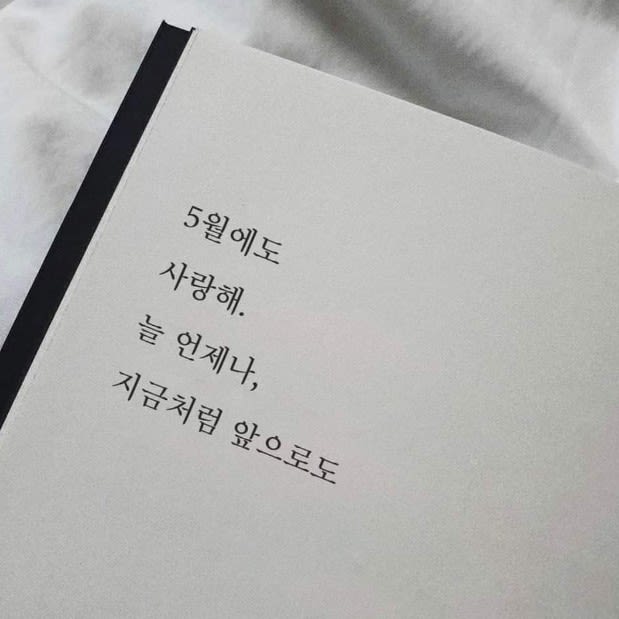 5월에도
사랑해.
늘 언제나,
지금처럼 앞으로도